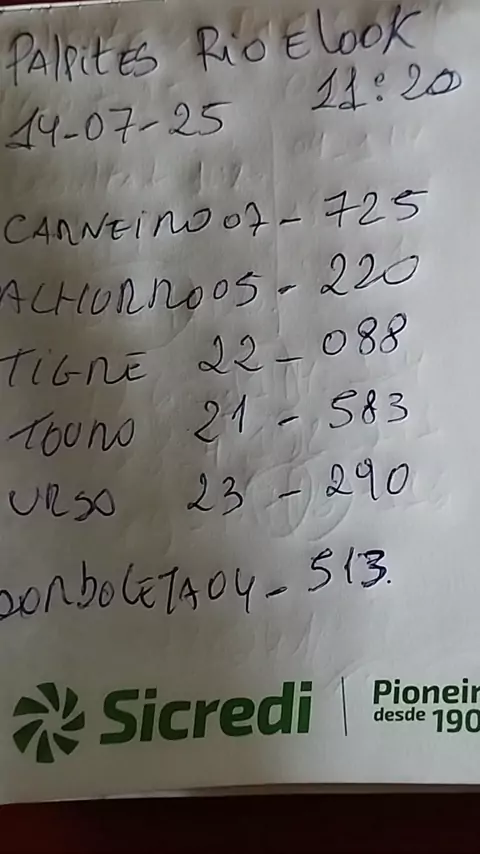 PALPITES RIO E LOOK
14-07-25 11:20
CARNEIRO 07 - 725
ACHORRO 05 - 220
TIGRE 22 - 088
TOURO 21 - 583
URSO 23 - 290
BORBOLETA 04 - 513.
Sicredi | Pioneir
desde 190